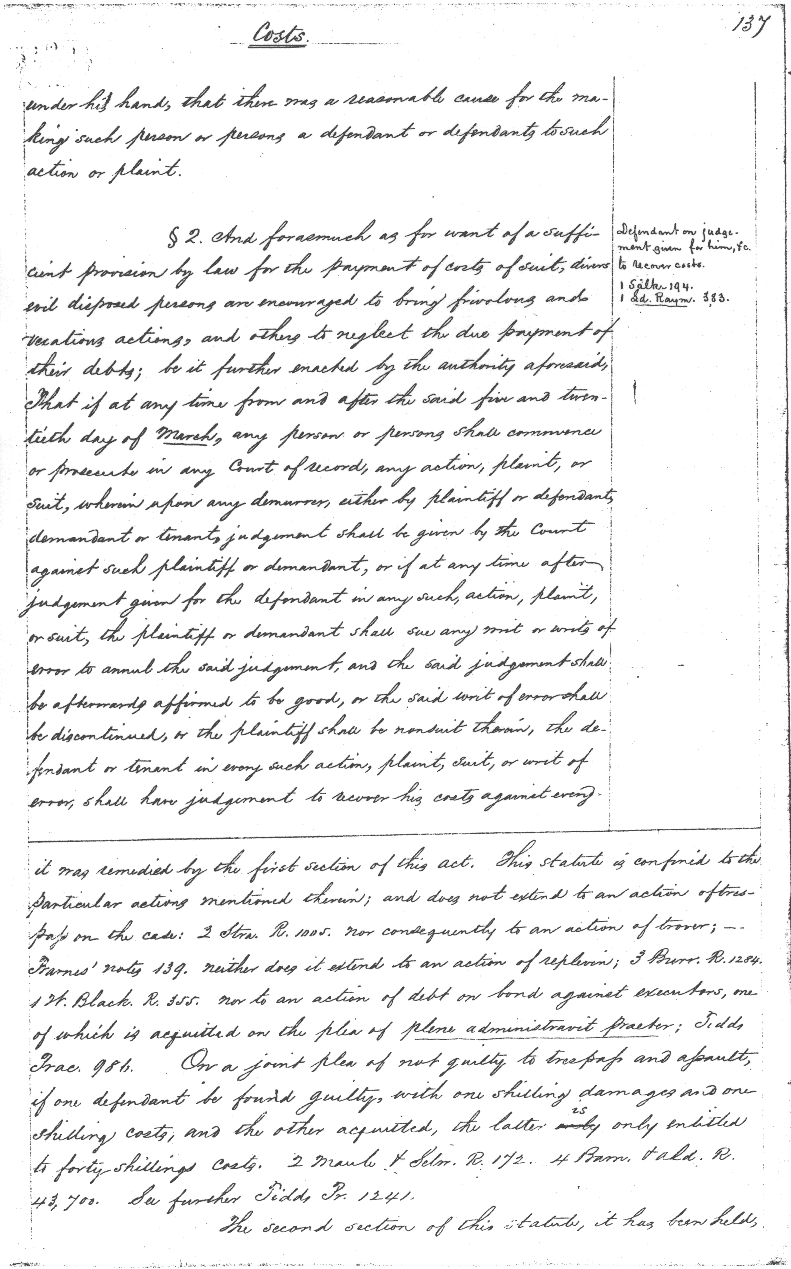 Costs.
137
under his hand, that there was a reasonable cause for the ma-
king such person or persons a defendant or defendants to such
action or plaint.
§ 2. And forasmuch as for want of a suffi-
cient provision by law for the payment of costs of suit, divers
evil disposed persons are encouraged to bring frivolous and
vexatious actions, and others to neglect the due payment of
their debts; be it further enacted by the authority aforesaid,
That if at any time from and after the said five and twen-
tieth day of March, any person or persons shall commence
or prosecute in any Court of record, any action, plaint, or
suit, wherein upon any demurrer, either by plaintiff or defendant,
demandant or tenant, judgement shall be given by the Court
against such plaintiff or demandant, or if at any time after
judgement given for the defendant in any such, action, plaint,
or suit, the plaintiff or demandant shall sue any writ or writs of
error to annul the said judgement, and the said judgement shall
be afterwards affirmed to be good, or the said writ of error shall
be discontinued, or the plaintiff shall be nonsuit therein, the de-
fendant or tenant in every such action, plaint, suit, or writ of
error, shall have judgement to recover his costs against every
Defendant on judge-
ment given for him, &c.
to recover costs.
1 Salk. 194.
1 Ld. Raym. 383.
it was remedied by the first section of this act. This statute is confined to the
particular actions mentioned therein; and does not extend to an action of tres-
pass on the case: 2 Stra. R. 1005. nor consequently to an action of trover; —
Barnes' notes 139. neither does it extend to an action of replevin; 3 Burr. R. 1284.
1 W. Black. R. 355. nor to an action of debt on bond against executors, one
of which is acquitted on the plea of plene administravit praeter; Tidds
Prac. 986. On a joint plea of not guilty to trespass and assault,
if one defendant be found guilty, with one shilling damages and one
shilling costs, and the other acquitted, the latter is only entitled
to forty shillings costs. 2 Maule & Selw. R. 172. 4 Barn. & Ald. R.
43, 700. See further Tidds Pr. 1241.
The second section of this statute, it has been held,